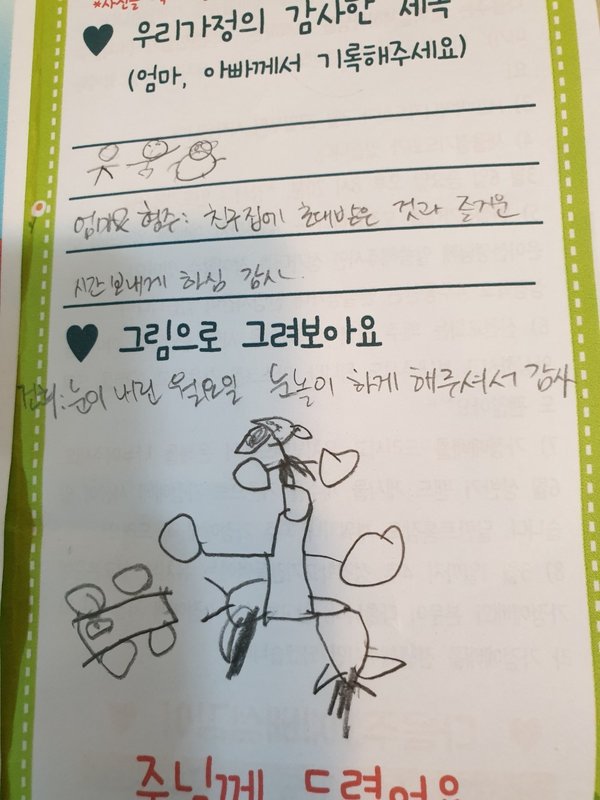 우리가정의 감사한 제목
(엄마, 아빠께서 기록해주세요)
형주: 친구집에 초대받은 것과 즐거운
시간보내게 하심 감사.
그림으로 그려보아요
눈이 내린 월요일 눈놀이 하게 해주셔서 감사
주님께 드려여요